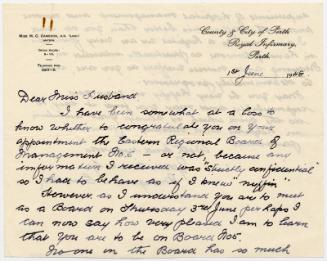 MISS H. C. CAMERON, M.B. (Lond.)
MATRON.
TELEPHONE:
County & City of Perth
Royal Infirmary,
Perth
1st June 1948.
Dear Miss Husband
I have been somewhat at a loss to
know whether to congratulate you on your
appointment the Eastern Regional Board of
Management No5 — or not, because any
information I received was "strictly confidential"
so I had to behave as if I knew "nuffin"
However, as I understand you are to meet
as a Board on Thursday 3rd June perhaps I
can now say how very pleased I am to learn
that you are to be on Board No5.
No one in the Board has so much